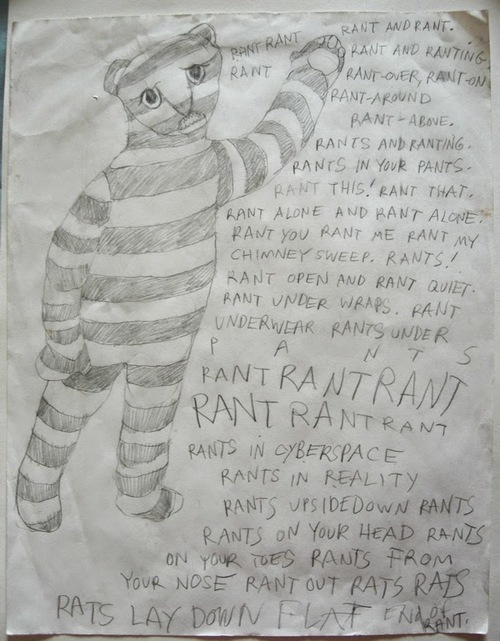 RANT RANT
RANT
RANT AND RANT.
RANT AND RANTING.
RANT-OVER, RANT-ON
RANT-AROUND
RANT-ABOVE.
RANTS AND RANTING.
RANTS IN YOUR PANTS.
RANT THIS! RANT THAT.
RANT ALONE AND RANT ALONE.
RANT YOU RANT ME RANT MY
CHIMNEY SWEEP. RANTS!
RANT OPEN AND RANT QUIET.
RANT UNDER WRAPS. RANT
UNDERWEAR RANTS UNDER
P A N T S
RANT RANT RANT
RANT RANT RANT
RANTS IN CYBERSPACE
RANTS IN REALITY
RANTS UPSIDEDOWN RANTS
RANTS ON YOUR HEAD RANTS
ON YOUR TOES RANTS FROM
YOUR NOSE RANT OUT RATS RATS
RATS LAY DOWN FLAT END OF
RANT.